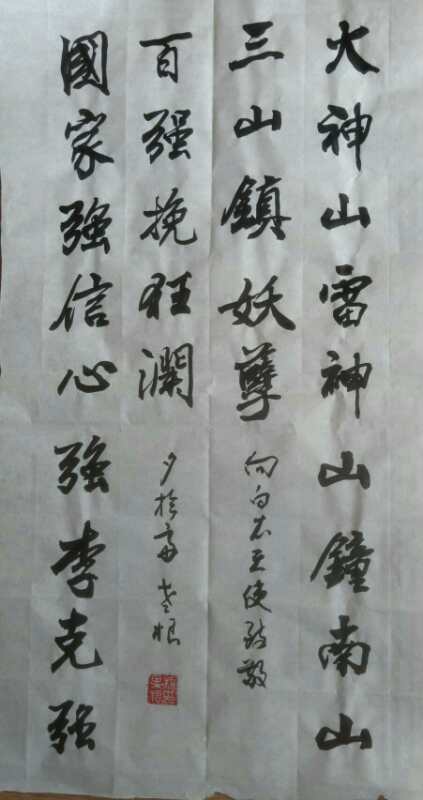 火神山雷神山鐘南山
三山鎮妖孽
向白衣天使致敬
國家強信心強李克強
百强挽狂瀾
老根